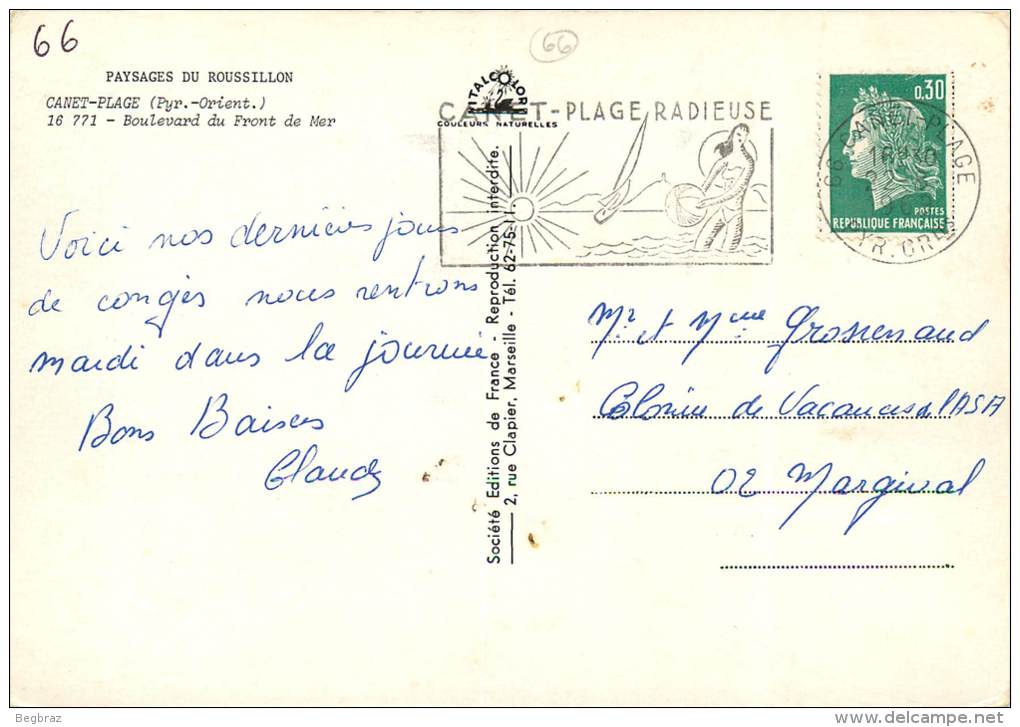 66
66
PAYSAGES DU ROUSSILLON
CANET-PLAGE (Pyr.-Orient.)
16 771 - Boulevard du Front de Mer
VITALCOLOR
COULEURS NATURELLES
CANET-PLAGE RADIEUSE
0,30
POSTES
REPUBLIQUE FRANÇAISE
66 CANET-PLAGE
PYR. ORLES
Voici nos derniers jours
de congés nous rentrons
mardi dans la journée
Bons Baisers
Claude
Société Editions de France - Reproduction interdite.
2, rue Clapier, Marseille - Tél. 62-75-11
Mr et Mme Grossenaud
Colonie de Vacances de l'ASA
02 Margival
Begbraz
www.delcampe.net